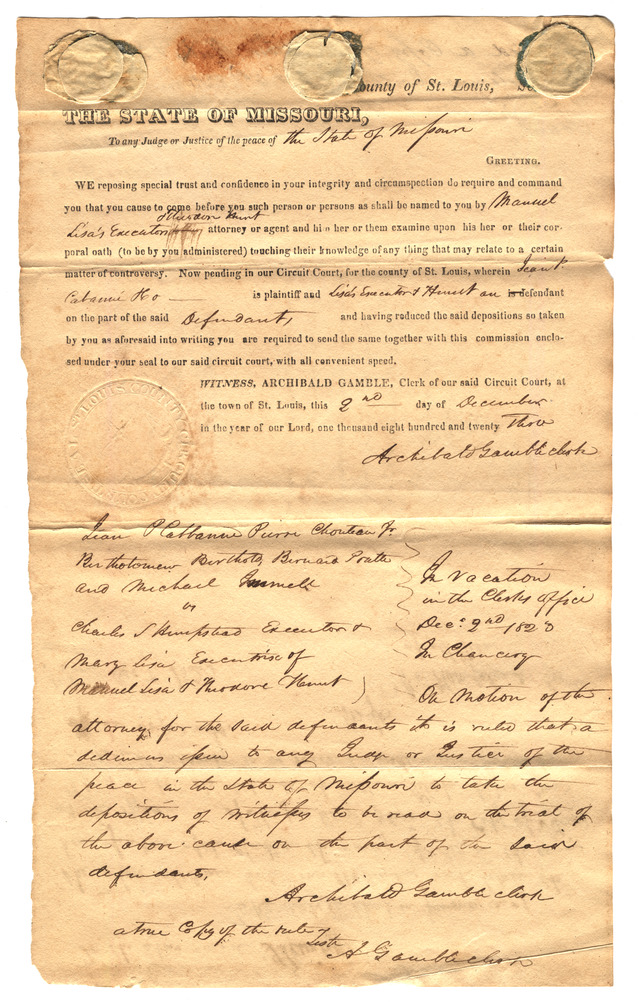 ounty of St. Louis,
THE STATE OF MISSOURI,
To any Judge or Justice of the peace of the State of Missouri
GREETING.
WE reposing special trust and confidence in your integrity and circumspection do require and command
you that you cause to come before you such person or persons as shall be named to you by Manuel
& Theodore Hunt
Lisa's Executor attorney or agent and him her or them examine upon his her or their cor-
poral oath (to be by you administered) touching their knowledge of any thing that may relate to a certain
matter of controversy. Now pending in our Circuit Court, for the county of St. Louis, wherein Jean P.
Cabanné is plaintiff and Lisa's Executor & Hunt are is defendant
on the part of the said Defendants, and having reduced the said depositions so taken
by you as aforesaid into writing you are required to send the same together with this commission enclo-
sed under your seal to our said circuit court, with all convenient speed.
WITNESS, ARCHIBALD GAMBLE, Clerk of our said Circuit Court, at
the town of St. Louis, this 2nd day of December
in the year of our Lord, one thousand eight hundred and twenty three
Archibald Gamble clerk
ST. LOUIS COUNTY CIRCUIT COURT SEAL
Jean P Cabbanne Pierre Chouteau Jr.
Bertholomew Berthold, Bernard Pratte
and Michael Immell
vs
Charles S Hempstead Executor &
Mary Lisa Executrix of
Manuel Lisa & Theodore Hunt
In Vacation
in the Clerks office
Decr 2nd 1823
In Chancery
On Motion of the
attorney for the said defendants it is ruled that a
dedimus issue to any Judge or Justice of the
peace in the State of Missouri to take the
depositions of witnesses to be read on the trial of
the above cause on the part of the said
defendants,
Archibald Gamble clerk
a true Copy of the rule
Teste
A Gamble clerk